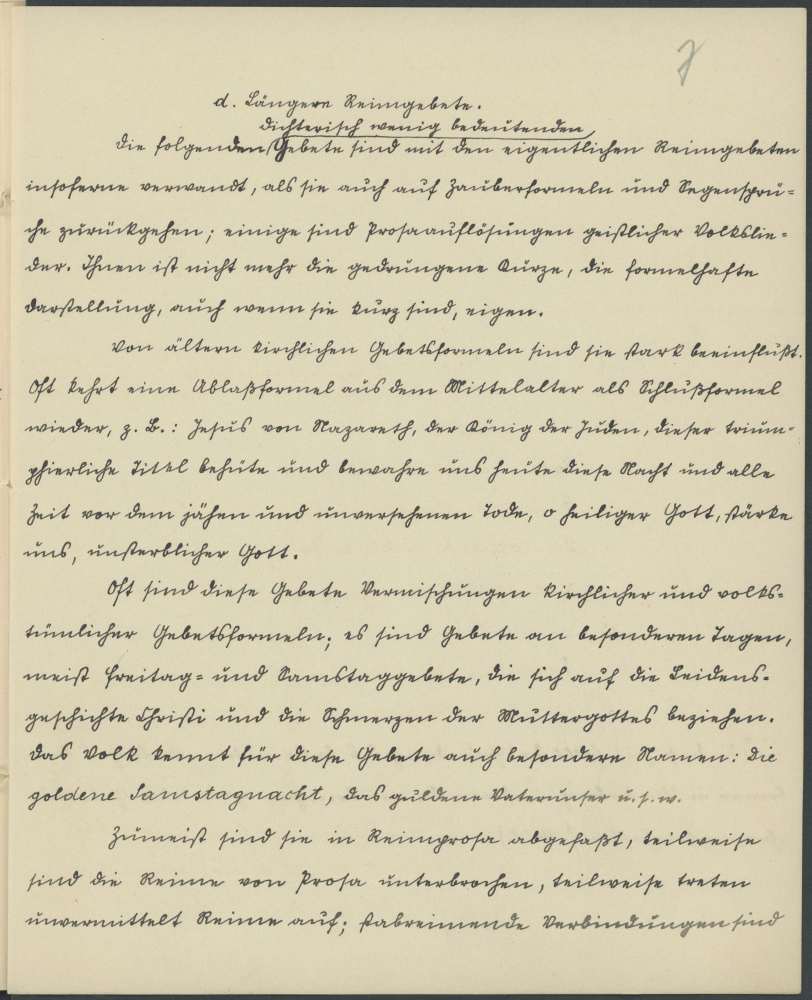 7
d. Längere Reimgebete.
dichterisch wenig bedeutenden
Die folgenden Gebete sind mit den eigentlichen Reimgebeten
insoferne verwandt, als sie auch auf Zauberformeln und Segensprü-
che zurückgehen; einige sind Prosaauflösungen geistlicher Volkslie-
der. Ihnen ist nicht mehr die gedrungene Kürze, die formelhafte
Darstellung, auch wenn sie kurz sind, eigen.
Von ältern kirchlichen Gebetsformeln sind sie stark beeinflußt.
Oft kehrt eine Ablaßformel aus dem Mittelalter als Schlußformel
wieder, z. B.: Jesus von Nazareth, der König der Juden, dieser trium-
phierliche Titel behüte und bewahre uns heute diese Nacht und alle
Zeit vor dem jähen und unversehenen Tode, o heiliger Gott, stärke
uns, unsterblicher Gott.
Oft sind diese Gebete Vermischungen kirchlicher und volks-
tümlicher Gebetsformeln; es sind Gebete an besonderen Tagen,
meist Freitag- und Samstaggebete, die sich auf die Leidens-
geschichte Christi und die Schmerzen der Muttergottes beziehen.
Das Volk kennt für diese Gebete auch besondere Namen: Die
goldene Samstagnacht, das guldene Vaterunser u. s. w.
Zumeist sind sie in Reimprosa abgefaßt, teilweise
sind die Reime von Prosa unterbrochen, teilweise treten
unvermittelt Reime auf; stabreimende Verbindungen sind